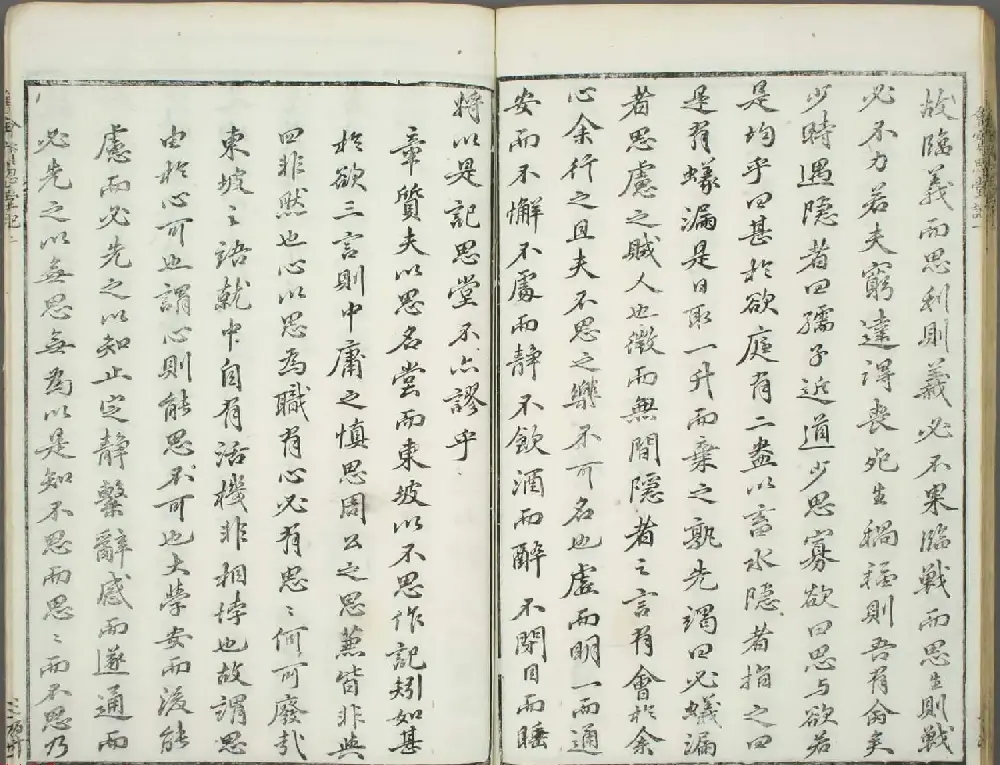 故臨義而思利則義必不果臨戰而思生則戰
必不力若夫窮達得喪死生禍福則吾有命矣
少時遇隱者曰孺子近道少思寡欲曰思与欲若
是均乎曰甚於欲庭有二盎以畜水隱者指之曰
是有蟻漏是日取一升而棄之孰先渴曰必蟻漏
者思慮之賊人也微而無間隱者之言有會於余
心余行之且夫不思之樂不可名也虛而明一而通
安而不懈不處而静不飲酒而醉不閉目而睡
將以是記思堂不亦謬乎
章質夫以思名堂而東坡以不思作記矧如甚
於欲三言則中庸之慎思周公之思蕙皆非與
四非然也心以思為職有心必有思〻何可廢哉
東坡之語就中自有活機非相悖也故謂思
由於心可也謂心則能思不可也大學安而後能
慮而必先之以知止定静繫辭感而遂通而
必先之以無思無為以是知不思而思〻而不思乃